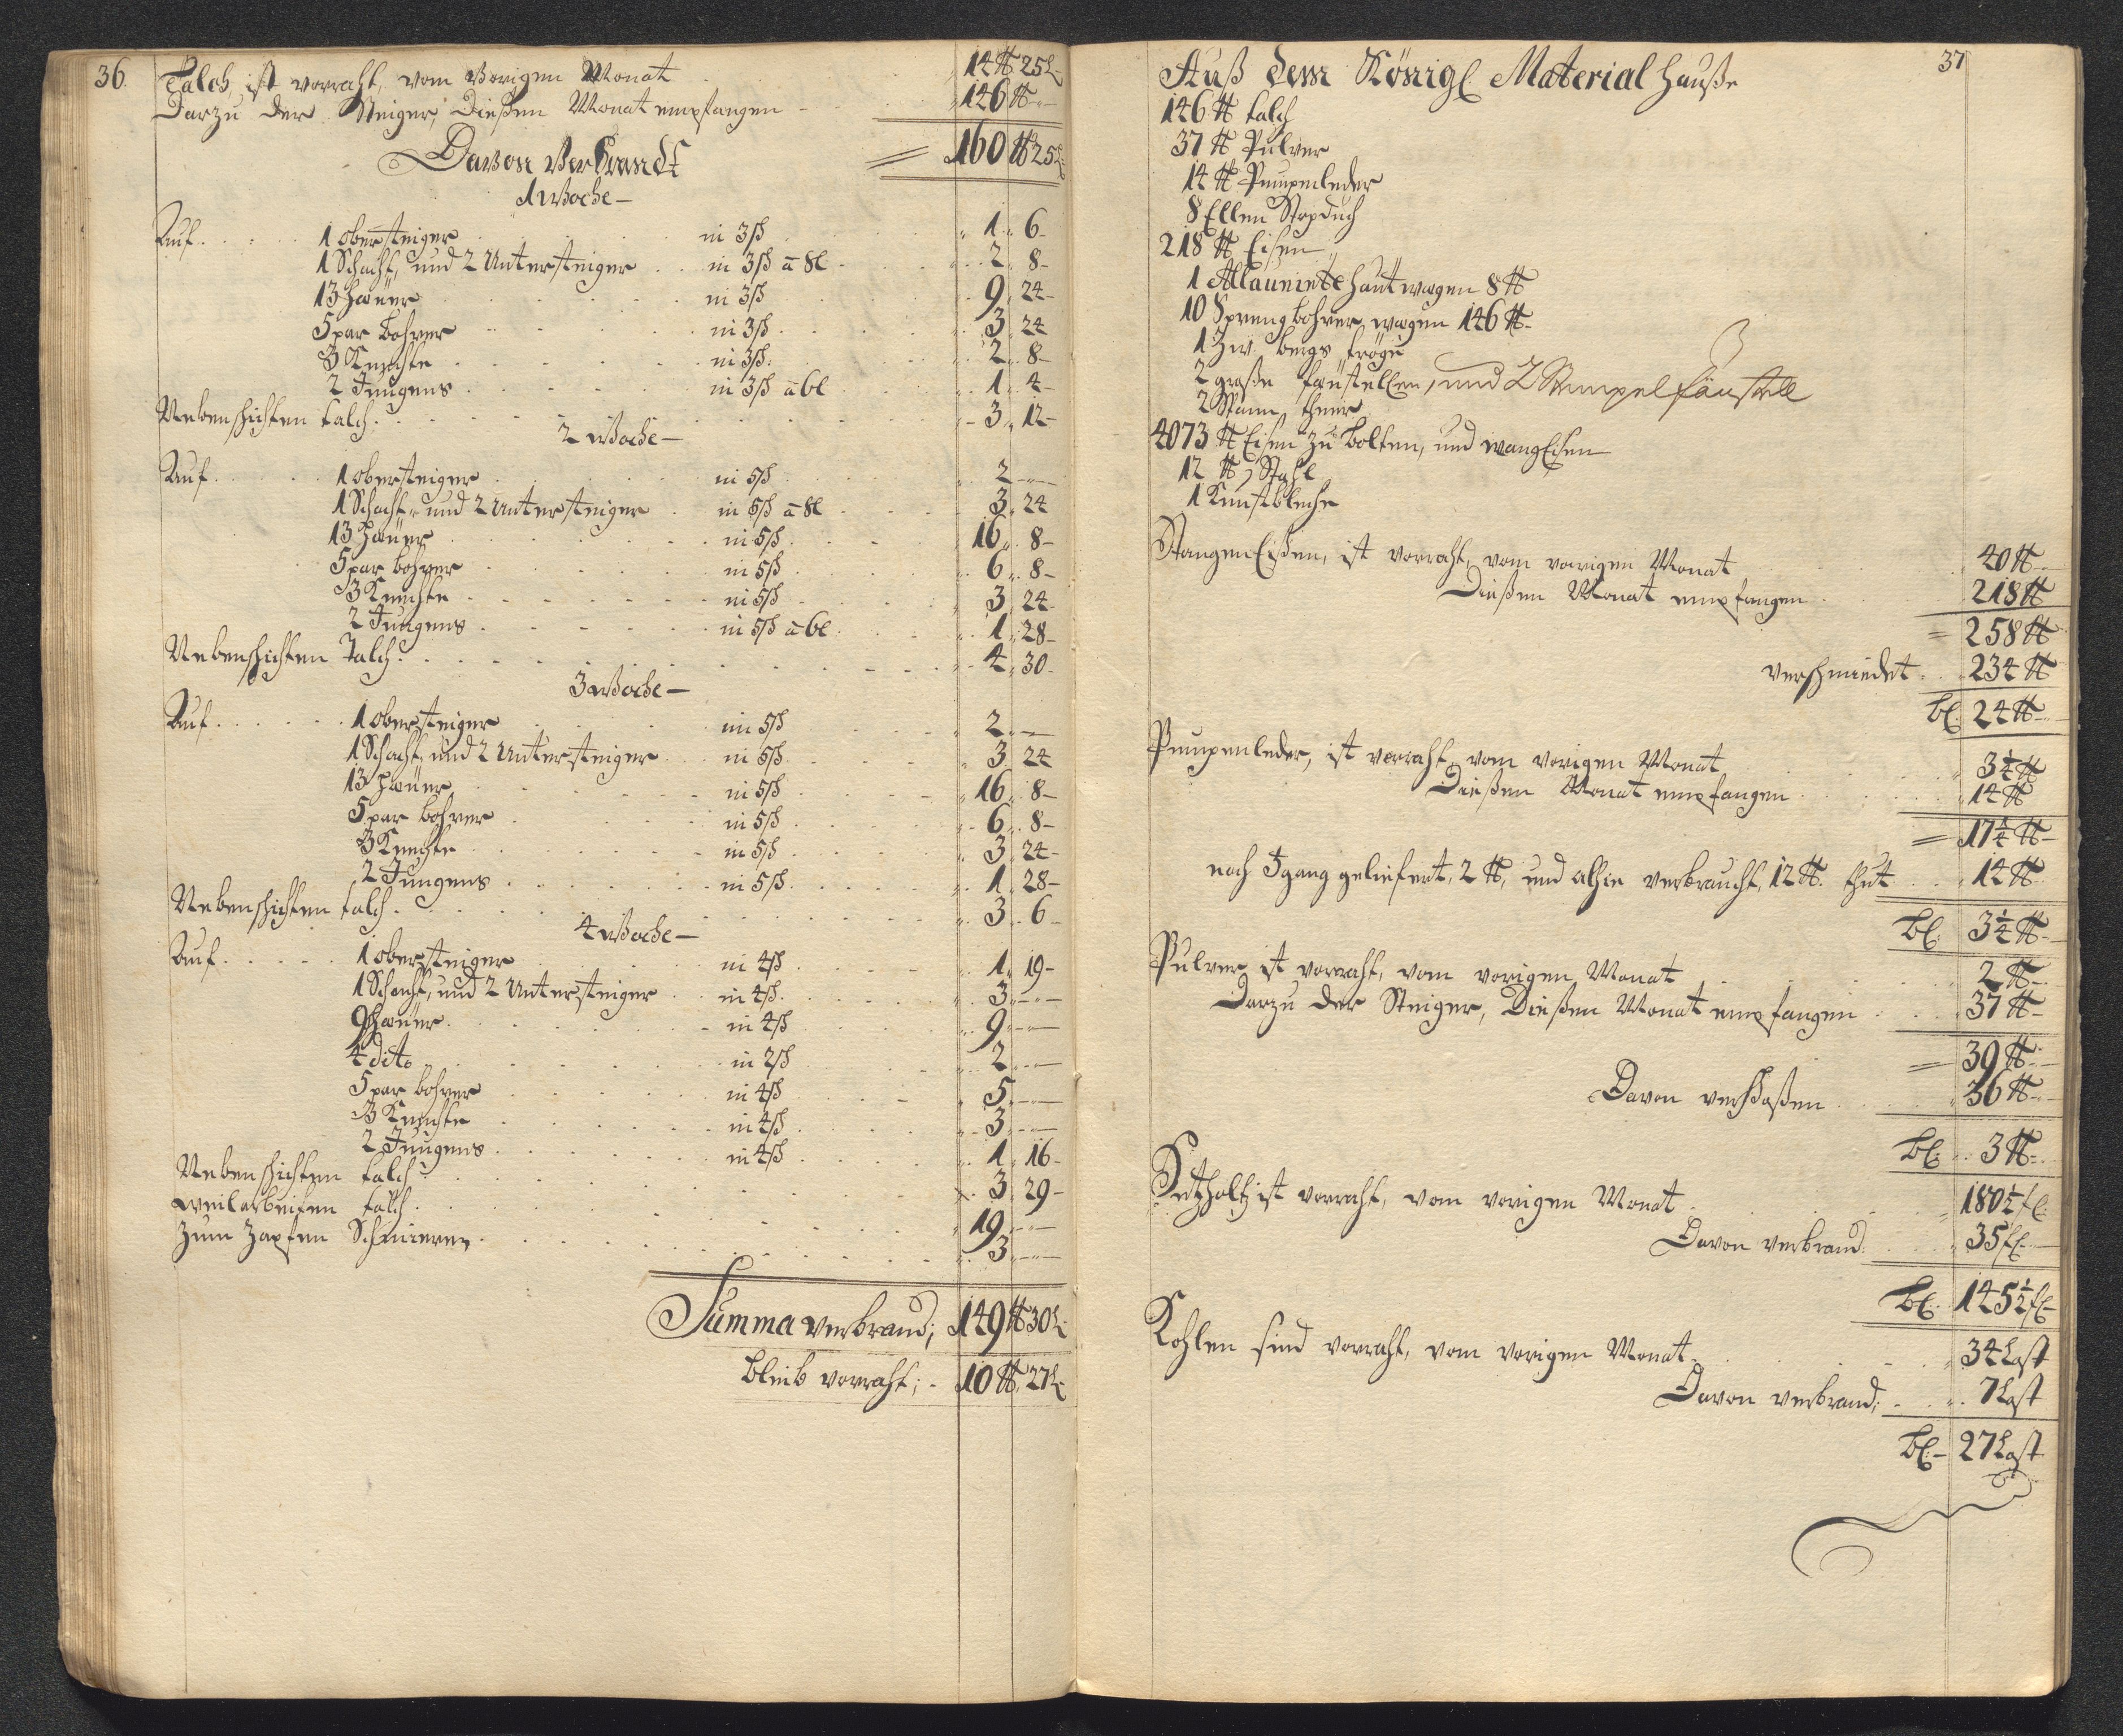 36.
Talch, ist vorraht, vom Vorigen Monat 14 ℔ 25 L
Darzu der Steiger, Dießen Monat empfangen 146 ℔
160 ℔ 25 L
Davon Verbrandt
1 Woche
Auf 1 obersteiger in 3ß 1 6
1 Schacht, und 2 Untersteiger in 3ß a 8l 2 8
13 Haüer in 3ß 9 24
5 par bohrer in 3ß 3 24
3 Knechte in 3ß 2 8
2 Jungens in 3ß a 6l 1 4
Nebenschichten talch 3 12
2 Woche
Auf 1 obersteiger in 5ß 2
1 Schacht, und 2 Untersteiger in 5ß a 8l 3 24
13 Haüer in 5ß 16 8
5 par bohrer in 5ß 6 8
3 Knechte in 5ß 3 24
2 Jungens in 5ß a 6l 1 28
Nebenschichten Talch 4 30
3 Woche
Auf 1 obersteiger in 5ß 2
1 Schacht, und 2 Untersteiger in 5ß 3 24
13 Haüer in 5ß 16 8
5 par bohrer in 5ß 6 8
3 Knechte in 5ß 3 24
2 Jungens in 5ß 1 28
Nebenschichten talch 3 6
4 Woche
Auf 1 obersteiger in 4ß 1 19
1 Schacht, und 2 Untersteiger in 4ß 3
9 Haüer in 4ß 9
4 dito in 2ß 2
5 par bohrer in 4ß 5
3 Knechte in 4ß 3
2 Jungens in 4ß 1 16
Nebenschichten talch 3 29
Weilarbeiten talch 19
Zum Zapfen Schmieren 3
Summa verbrand; 149 ℔ 30 L
bleib vorraht; 10 ℔ 27 L
37
Auß dem Königl Material Hauße
146 ℔ talch
37 ℔ Pulver
14 ℔ Pumpenleder
8 Ellen Stopduch
218 ℔ Eisen
1 Allaunirte Haut wagen 8 ℔
10 Sprengbohrer wagen 146 ℔
1 Zw. bergs tröge
2 große faüstellen, und 2 Stempel faüstell
2 Stann theer
4073 ℔ Eisen zu bolten, und wangEisen
12 ℔ Stahl
1 Kunstbleche
StangenEißen, ist vorraht, vom vorigen Monat 40 ℔
Dießen Monat empfangen 218 ℔
258 ℔
verschmiedet 234 ℔
bl: 24 ℔
Pumpenleder, ist vorraht, vom vorigen Monat 3¼ ℔
Dießen Monat empfangen 14 ℔
17¼ ℔
noch Igang geliefert, 2 ℔, und alhie verbraucht, 12 ℔. thut 14 ℔
bl: 3¼ ℔
Pulver ist vorraht, vom vorigen Monat 2 ℔
Darzu der Steiger, Dießen Monat empfangen 37 ℔
39 ℔
Davon verschoßen 36 ℔
bl: 3 ℔
Setzholtz ist vorraht, vom vorigen Monat 180½ fl.
Davon verbrand 35 fl.
bl: 145½ fl
Kohlen sind vorraht, vom vorigen Monat 34 Last
Davon verbrand; 7 Last
bl: 27 Last